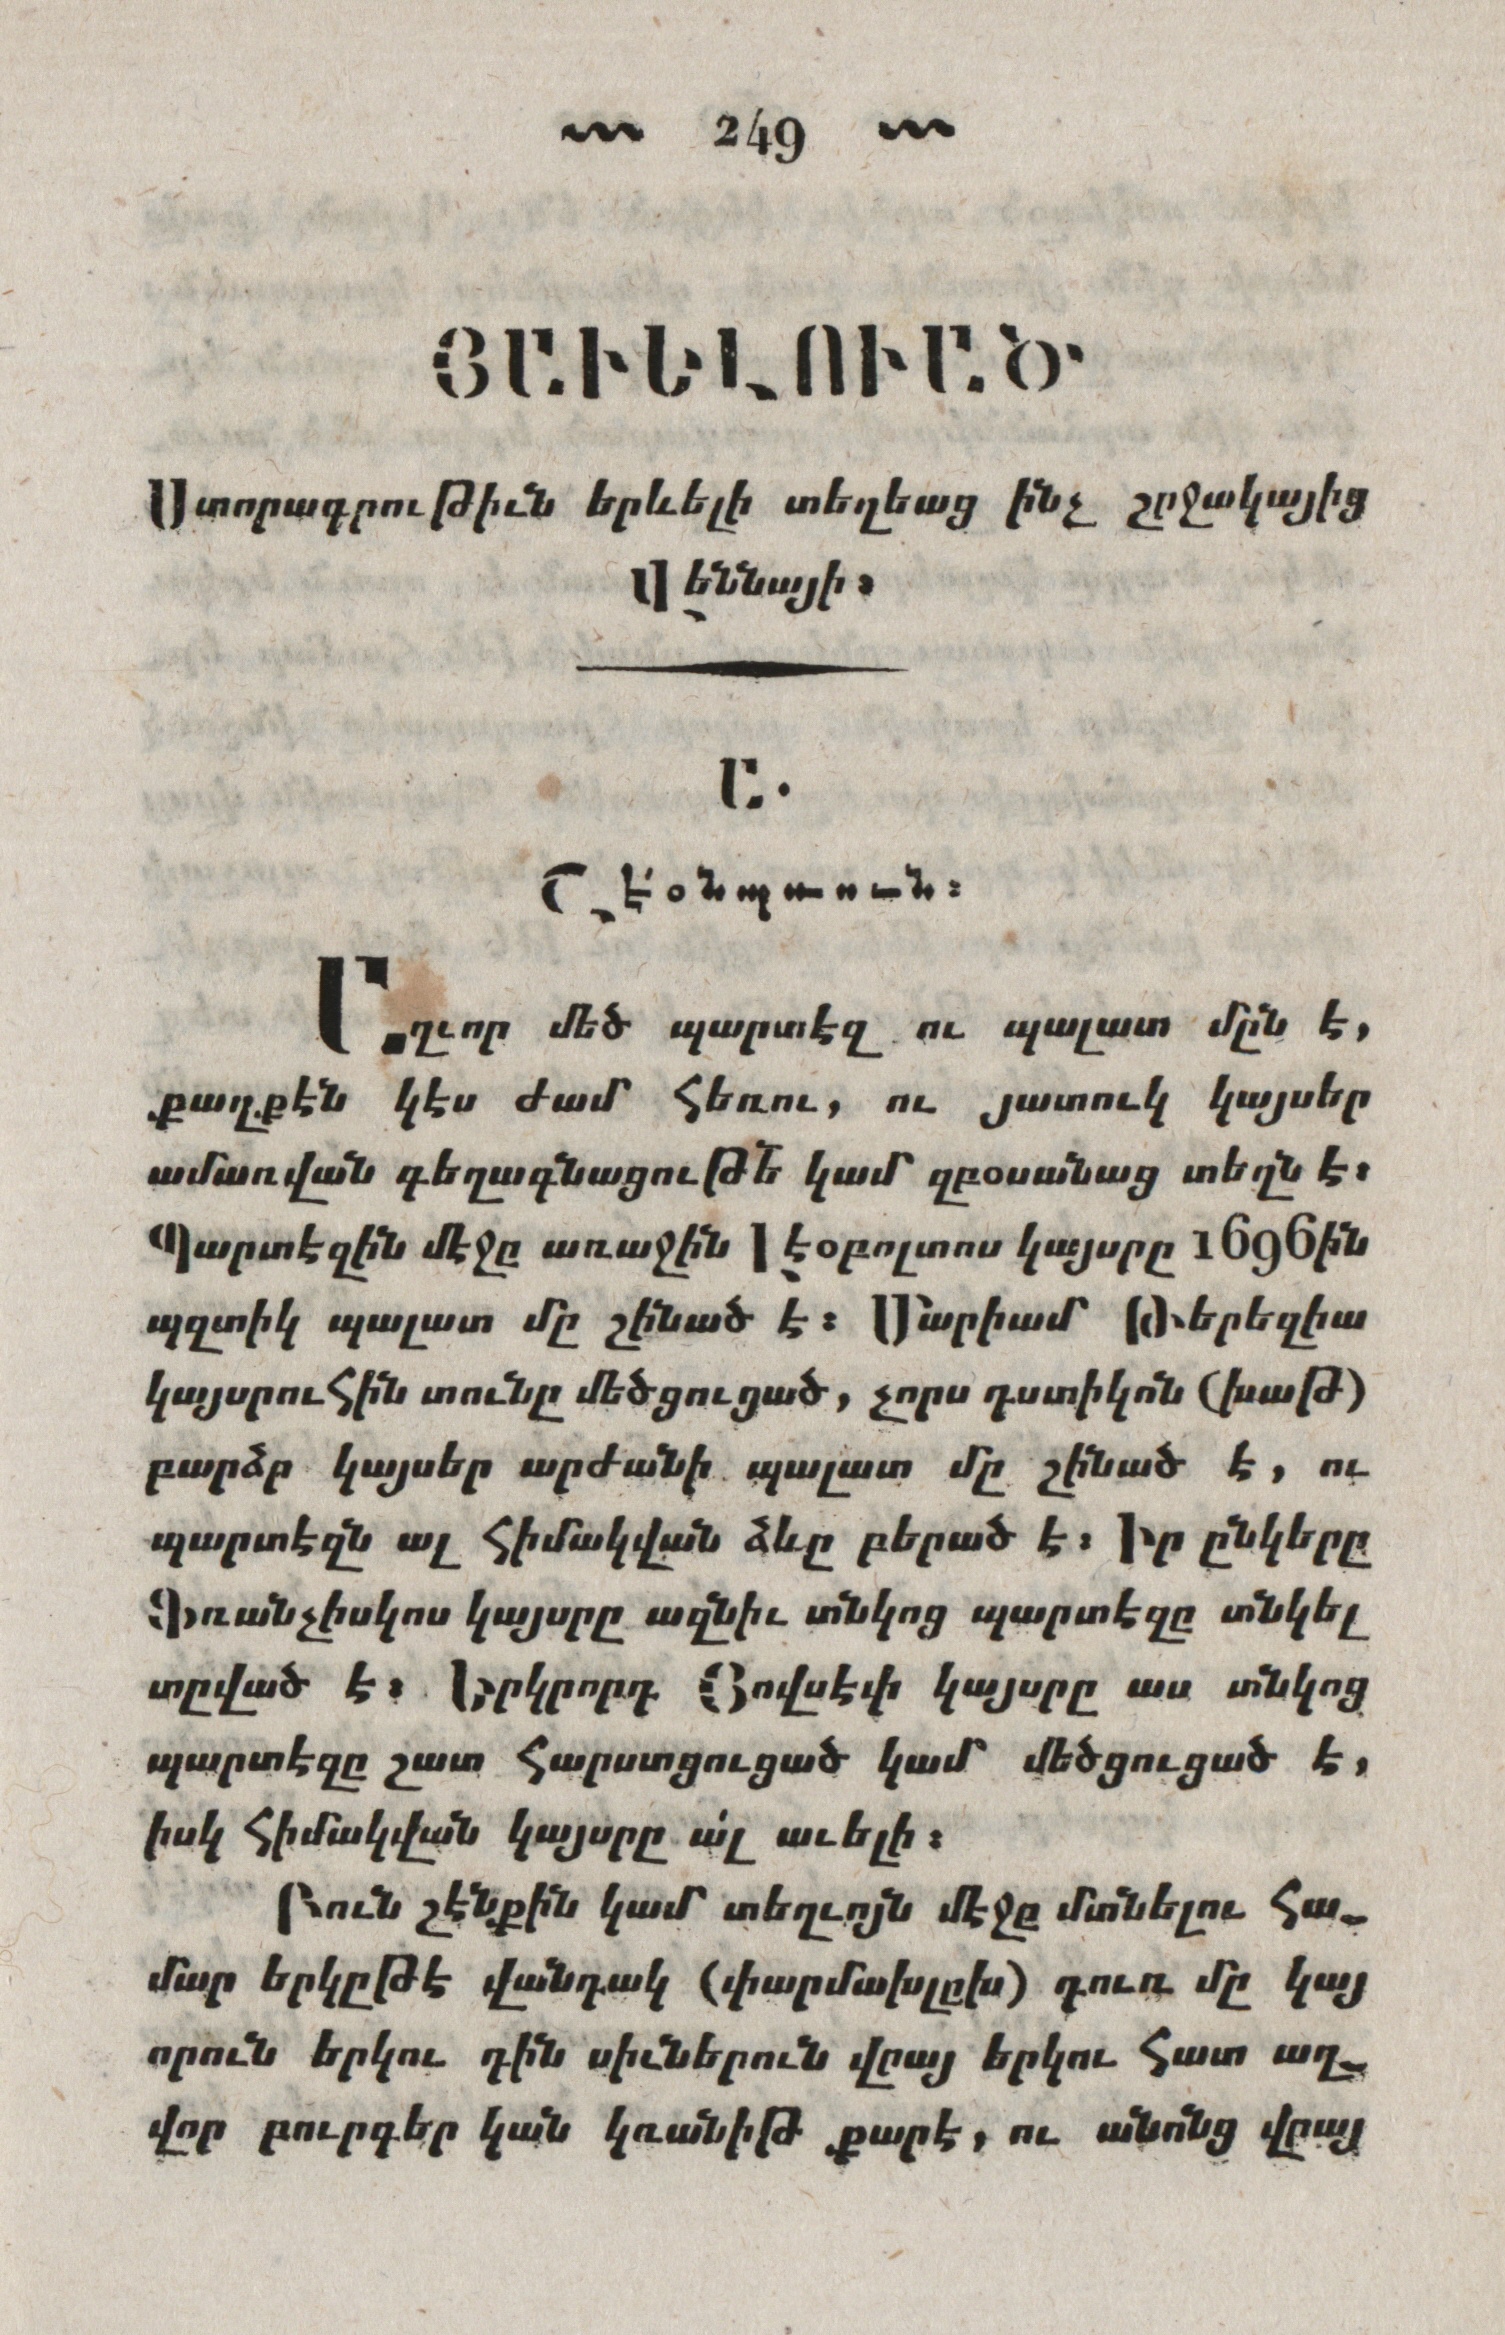 249
ՅԱՒԵԼՈՒԱԾ
Ստորագրութիւն երևելի տեղեաց ինչ շըջակայից
Վէննայի։
Ա.
Շէ՛օնպռուն։
Աղւոր մեծ պարտէզ ու պալատ մըն է,
քաղքէն կէս ժամ հեռու, ու յատուկ կայսեր
ամառվան գեղագնացութե՟ կամ զբօսանաց տեղն է։
Պարտէզին մէջը առաջին Լէօբոլտոս կայսրը 1696ին
պզտիկ պալատ մը շինած է։ Մարիամ Թերեզիա
կայսրուհին տունը մեծցուցած, չորս դստիկոն (խաթ)
բարձր կայսեր արժանի պալատ մը շինած է, ու
պարտէզն ալ հիմակվան ձևը բերած է։ Իր ընկերը
Ֆռանչիսկոս կայսրը ազնիւ տնկոց պարտէզը տնկել
տըված է։ Երկրորդ Յովսէփ կայսրը աս տնկոց
պարտէզը շատ հարստցուցած կամ մեծցուցած է,
իսկ հիմակվան կայսրը ա՛լ աւելի։
Բուն շէնքին կամ տեղւոյն մէջը մտնելու հա֊
մար երկըթէ վանդակ (փարմախլըխ) դուռ մը կայ
որուն երկու դին սիւներուն վրայ երկու հատ աղ֊
վոր բուրգեր կան կռանիթ քարէ, ու անոնց վրայ